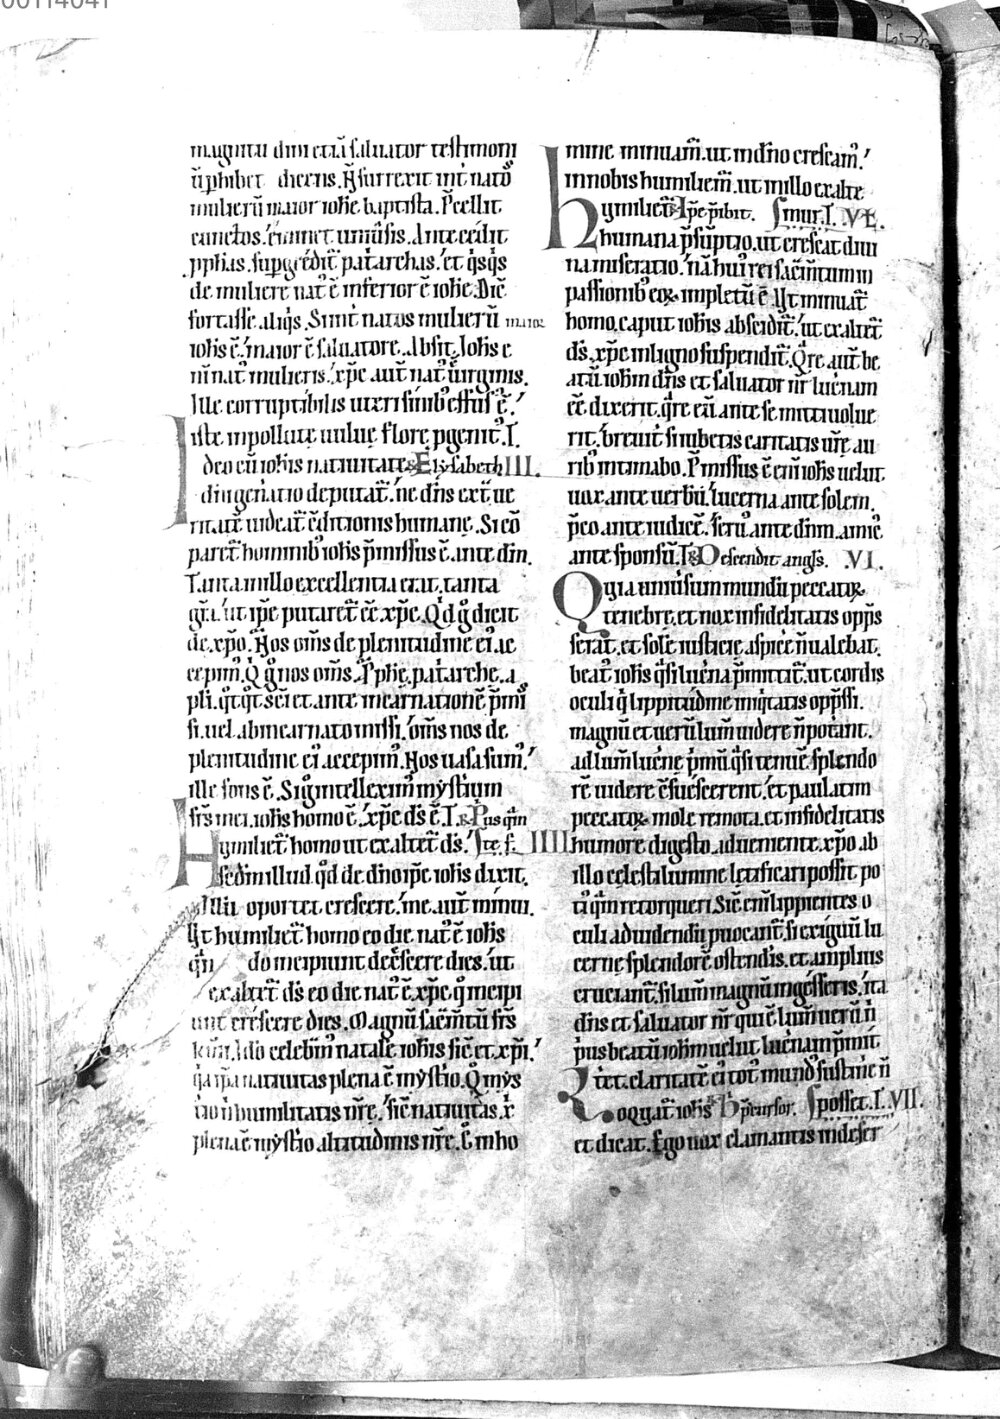 00114041
magnitudinem etiā saluator testimoniū
ꝑhibet dicens. Ꞃ surrexit int̄ natos
mulierū maior iohē baptista. P̄cellit
cunctos. eminet uniūsis. Antecedit
ꝓphas. suꝑgredit᷑ patarchas. et q̇sq̇s
de muliere nat᷑ ē inferior ē iohe. Dic̄
fortasse aliq̇s. Si int̄ natos mulierū maior
iohs ē. maior ē saluatore. Absit. Iohs e
ni᷑ nat᷑ mulieris. xp̄c aut̄ nat᷑ uirginis.
Ille corruptibilis uteri sinib᷑ effus᷑ ē.
iste inpollute uulue flore ꝓgenit᷑. T.
deo cū iohis natiuitate Elisabeth III.
din generatio deputat᷑. ne dn̄s ext᷑ ue
ritatē uideat᷑ ꝯditionis humane. Si cō
paret᷑ hominib᷑ iohis p̄missus ē ante dn̄m.
Tanta in illo excellentia erat. tanta
gr̄a. ut ip̄e putaret᷑ eē xp̄c. Qd̄ g̊ dicit
de xp̄o. Nos om̄s de plenitudine ei᷑ ac
cepim᷑. Q̇ g̊ nos om̄s. P̄phe. patarche. a
pli. q̊tq̊t sc̄i et ante incarnationē p̄missi
si. uel ab incarnato missi. om̄s nos de
plenitudine ei᷑ accepim᷑. Nos uasa sum᷑.
ille fons ē. Si g̊ intelleximꝰ mysterium
frs̄ mei. iohis homo ē. xp̄c ds̄ ē. T.
Humiliet᷑ homo ut exaltet᷑ ds̄. IIII
sedm̄ illud. qd̄ de dn̄o ip̄e iohis dixit.
Illū oportet crescere. me aut̄ minui.
Ut humiliet᷑ homo eo die nat᷑ ē iohis
qn̄ do incipiunt decrescere dies. ut
exaltet᷑ ds̄ eo die nat᷑ ē xp̄c q̊ incipi
unt crescere dies. Magnū sac̄mtū frs̄
km̄i. Ido celebrm᷑ natale iohis sic̄ et xp̄i.
q̇a ip̄a natiuitas plena ē mystio. Q̊ mys
tio? humilitatis nr̄e. sic̄ natiuitas x̄
plena ē mystio altitudinis nr̄e. In ho
mine minuam᷑. ut in dn̄o crescam᷑.
in nobis humiliem᷑. ut in illo exalte
Humiliet᷑ VI.
humana p̄sūptio. ut crescat diui
na miseratio. nā hui᷑ rei sac̄mtum in
passionib᷑ eoꝝ impletū ē. Ut minuat᷑
homo. caput iohis abscidit᷑. ut exaltet᷑
ds̄. xp̄c in ligno suspendit᷑. Qre aut̄ be
atū iohm dn̄s et saluator nr̄ lucernam
eē dixerit. qre eū ante se mitti uolue
rit. breuit᷑ si iubetis caritatis ur̄e au
rib᷑ intimabo. P̄missus ē em̄ iohis uelut
uox ante uerbū. lucerna ante solem.
p̄co ante iudicē. seru᷑ ante dn̄m. amic᷑
ante sponsū. T Descendit angls. VI.
Quia uniūsum mundū peccatoꝝ
tenebre. et nox infidelitatis opp̄s
serat. et solē iusticie aspicē n̄ ualebat.
beat᷑ iohis q̊si lucerna p̄mittit᷑. ut cordis
oculi q̇ lippitudine iniq̇tatis opp̄ssi.
magnū et uerū lum̄ uidere n̄ poterant.
ad lum̄ lucerne p̄mū q̊si tenuē splendo
rē uidere ꝯsuescerent. et paulatim
peccatoꝝ mole remota. et infidelitatis
humore digesto. adueniente xp̄o ab
illo celesti lumine letificari possit po
ti᷑ qm̄ retorqueri. Sic̄ em̄ lippientes o
culi ad uidendū puocant᷑. si exiguū lu
cerne splendorē ostendis. et amplius
cruciant᷑. si lum̄ magnū ingesseris. ita
dn̄s et saluator nr̄ qui ē lum̄ uerū n̄
p̄us beatū iohm uelut lucernam p̄mit
teret. claritatē ei᷑ tot᷑ mund᷑ sustinē n̄
Loquat᷑ iohis P̄cursor. posset. T. VII.
et dicat. Ego uox clamantis in deser